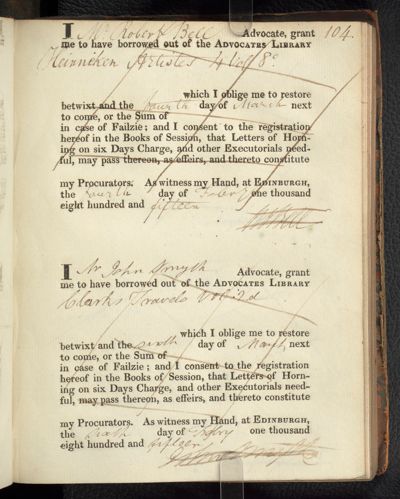 104.
I Mr Robert Bell Advocate, grant
me to have borrowed out of the ADVOCATES LIBRARY
Artistes 4 Vol 8°
which I oblige me to restore
betwixt and the fourth day of March next
to come, or the Sum of
in case of Failzie; and I consent to the registration
hereof in the Books of Session, that Letters of Horn-
ing on six Days Charge, and other Executorials need-
ful, may pass thereon, as effeirs, and thereto constitute
my Procurators. As witness my Hand, at EDINBURGH,
the fourth day of one thousand
eight hundred and fifteen
Bell
I Mr John Smyth Advocate, grant
me to have borrowed out of the ADVOCATES LIBRARY
Clarks Travels Vol
which I oblige me to restore
betwixt and the sixth day of March next
to come, or the Sum of
in case of Failzie; and I consent to the registration
hereof in the Books of Session, that Letters of Horn-
ing on six Days Charge, and other Executorials need-
ful, may pass thereon, as effeirs, and thereto constitute
my Procurators. As witness my Hand, at EDINBURGH,
the sixth day of one thousand
eight hundred and fifteen
John Smyth